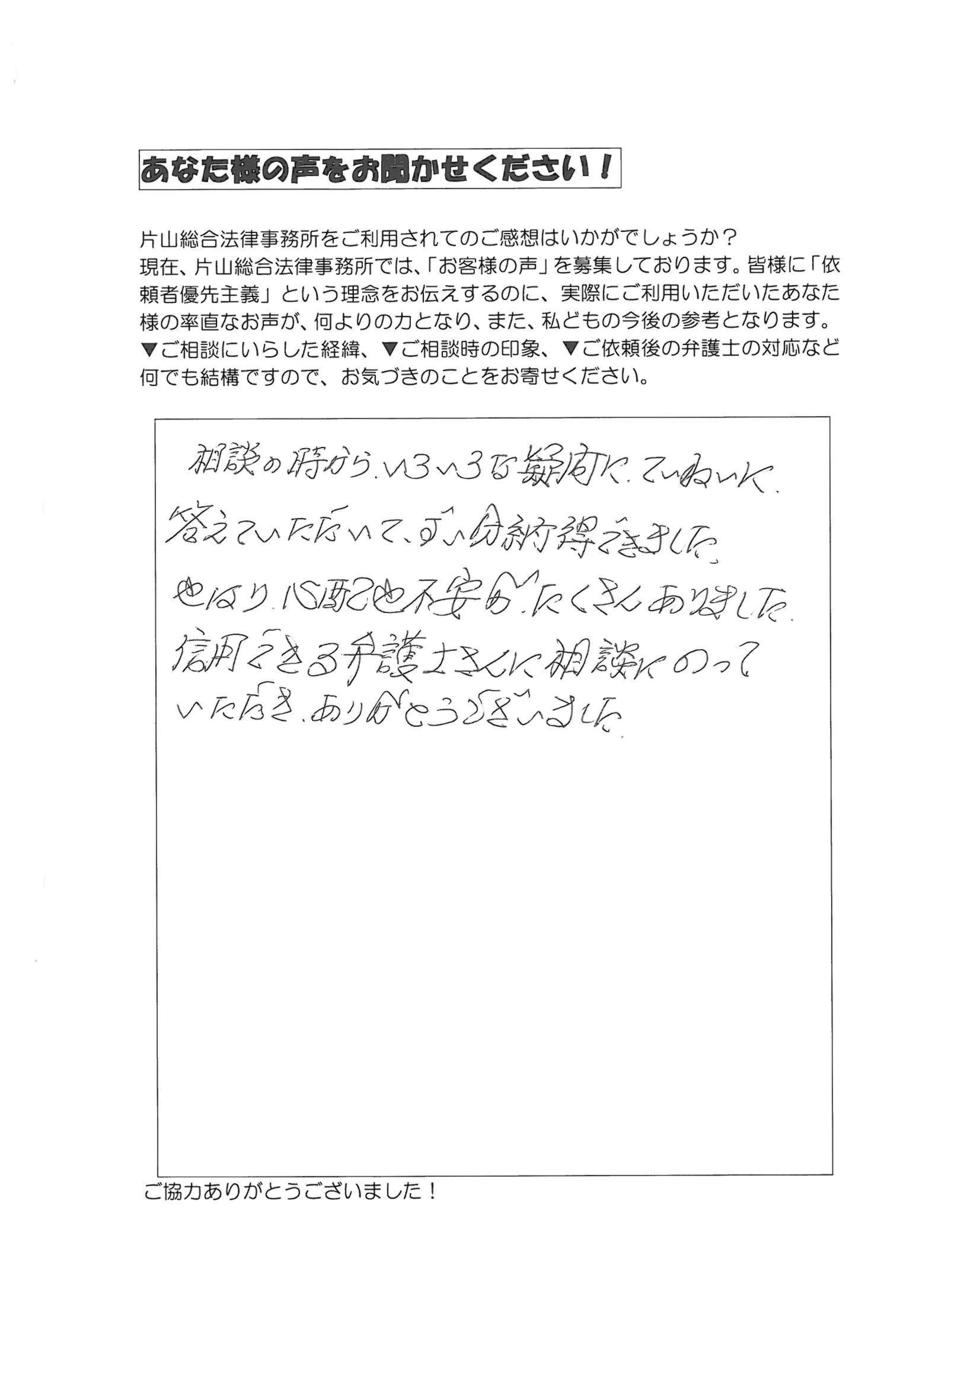 あなた様の声をお聞かせください！
片山総合法律事務所をご利用されてのご感想はいかがでしょうか？
現在、片山総合法律事務所では、「お客様の声」を募集しております。皆様に「依
頼者優先主義」という理念をお伝えするのに、実際にご利用いただいたあなた
様の率直なお声が、何よりの力となり、また、私どもの今後の参考となります。
▼ご相談にいらした経緯、▼ご相談時の印象、▼ご依頼後の弁護士の対応など
何でも結構ですので、お気づきのことをお寄せください。
相談の時から、いろいろな疑問に、ていねいに、
答えていただいて、ずい分納得できました。
やはり、心配や不安が、たくさんありました。
信用できる弁護士さんに相談にのって
いただき、ありがとうございました。
ご協力ありがとうございました！